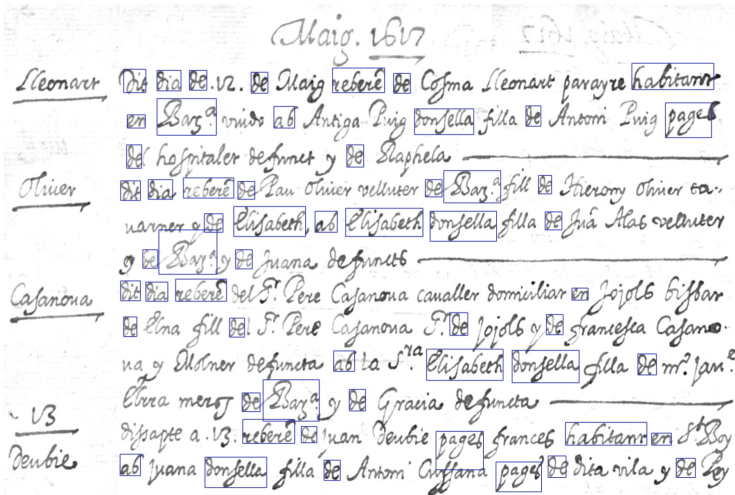 Maig. 1617
Lleonart
Dit dia de .12. de Maig reberē de Cosma Lleonart parayre habitant
en Barᵃ viudo ab Antiga Puig donsella filla de Antoni Puig pages
del hospitalet defunct y de Raphela
Oliver
dit dia reberē de Pau Oliver velluter de Barᵃ fill de Hierony Oliver ta-
varner y de Elisabeth, ab Elisabeth donsella filla de Juā Alas velluter
y de Barᵃ y de Juana defuncts
Casanova
dit dia reberē del Sʳ Pere Casanova cavaller domiciliat en Jojols bisbat
de Elna fill del Sʳ Pere Casanova Sʳ de Jojols y de francesca Casano-
va y Molner defuncta ab la Sʳᵃ Elisabeth donsella filla de mº Jaume
merᵣ de Barᵃ y de Gracia defuncta
13
dissapte a .13. reberē de Juan Deubie pages frances habitant en St Boy
Deubie
ab Juana donsella filla de Antoni pages de dita vila y de